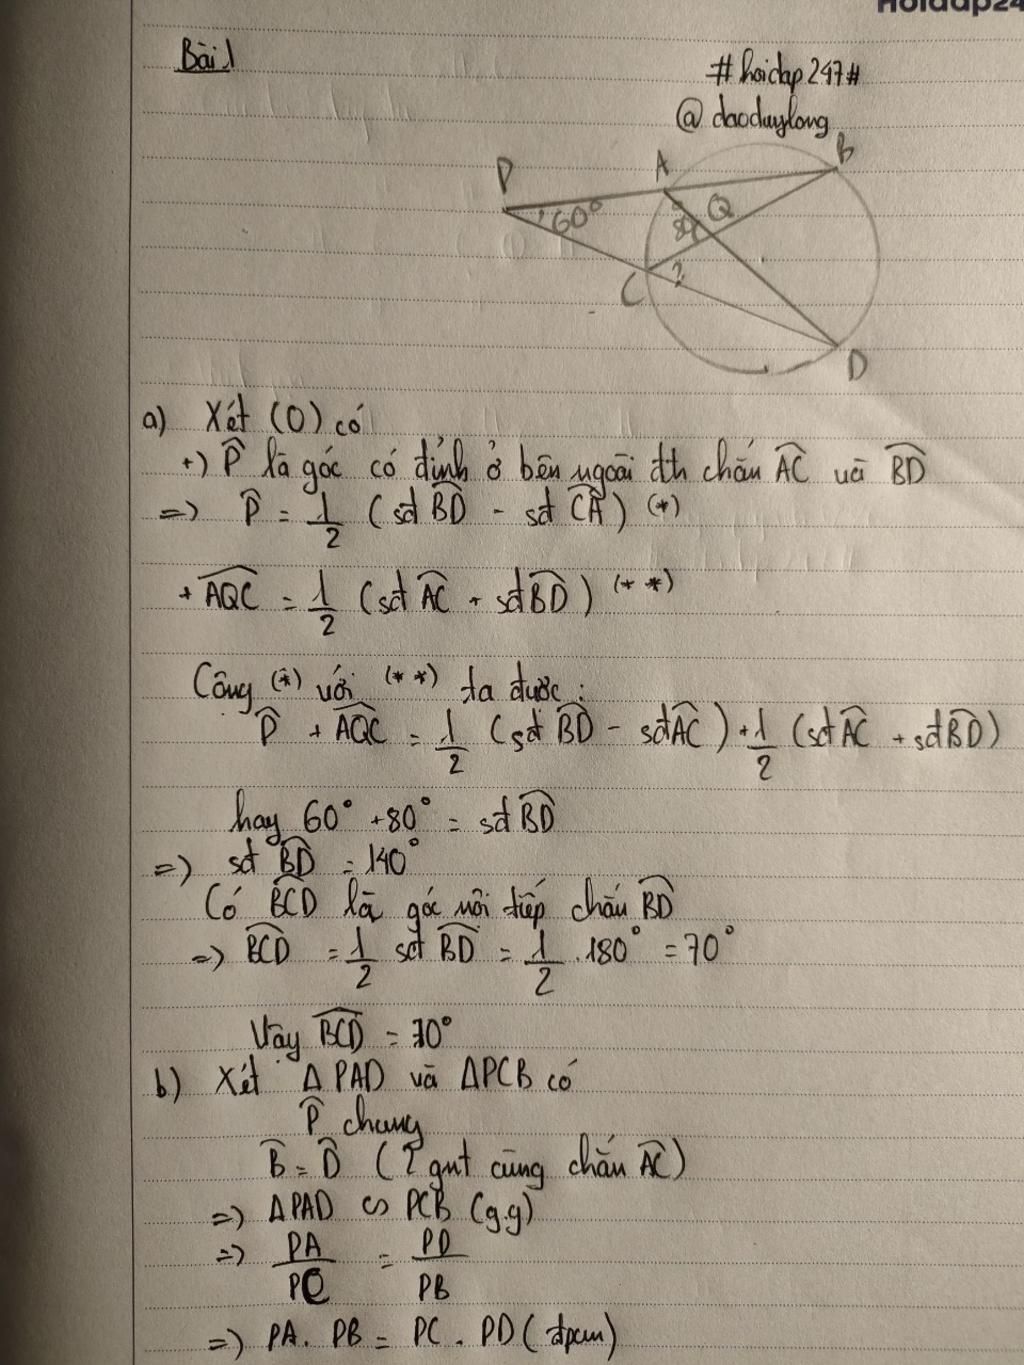 Hoidap24
Bài 1
#hoidap247#
@daoduylong
P
A
B
60°
Q
80°
C
?
D
a) Xét (O) có
+) P̂ là góc có đỉnh ở bên ngoài đth chắn AC và BD
=> P̂ = 1/2 (sđ BD - sđ CA) (*)
+ AQC = 1/2 (sđ AC + sđ BD) (**)
Cộng (*) với (**) ta được:
P̂ + AQC = 1/2 (sđ BD - sđ AC) + 1/2 (sđ AC + sđ BD)
hay 60° + 80° = sđ BD
=> sđ BD = 140°
Có BCD là góc nội tiếp chắn BD
=> BCD = 1/2 sđ BD = 1/2 . 180° = 70°
Vậy BCD = 70°
b) Xét Δ PAD và ΔPCB có
P̂ chung
B̂ = D̂ (2 gnt cùng chắn AC)
=> ΔPAD ∽ PCB (g.g)
=> PA/PC = PD/PB
=> PA. PB = PC . PD (đpcm)